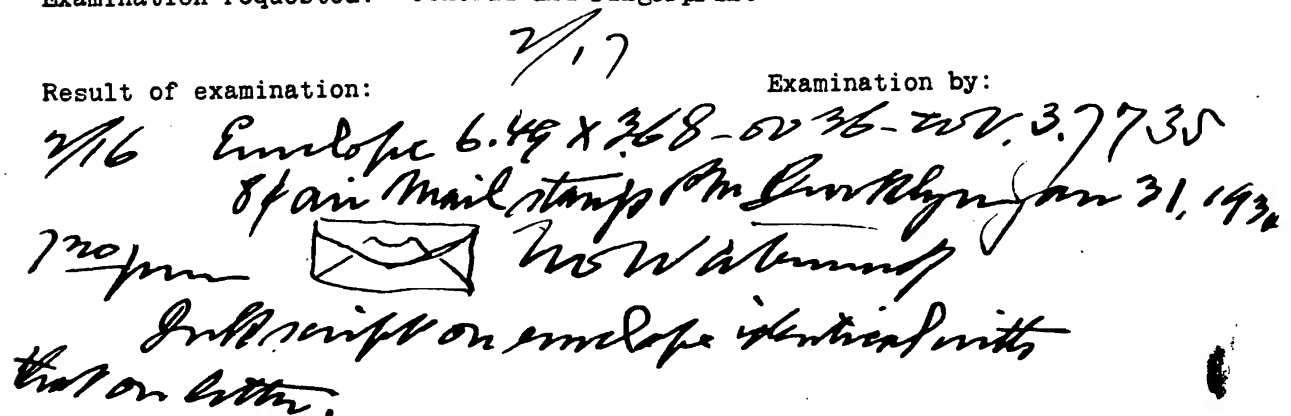 Examination requested:
2/17
Result of examination: Examination by:
2/16 Envelope 6.49 X 3.68
8¢ air Mail stamp PM Brooklyn Jan 31, 193
No Watermark
Ink script on envelope identical with
that on letter.